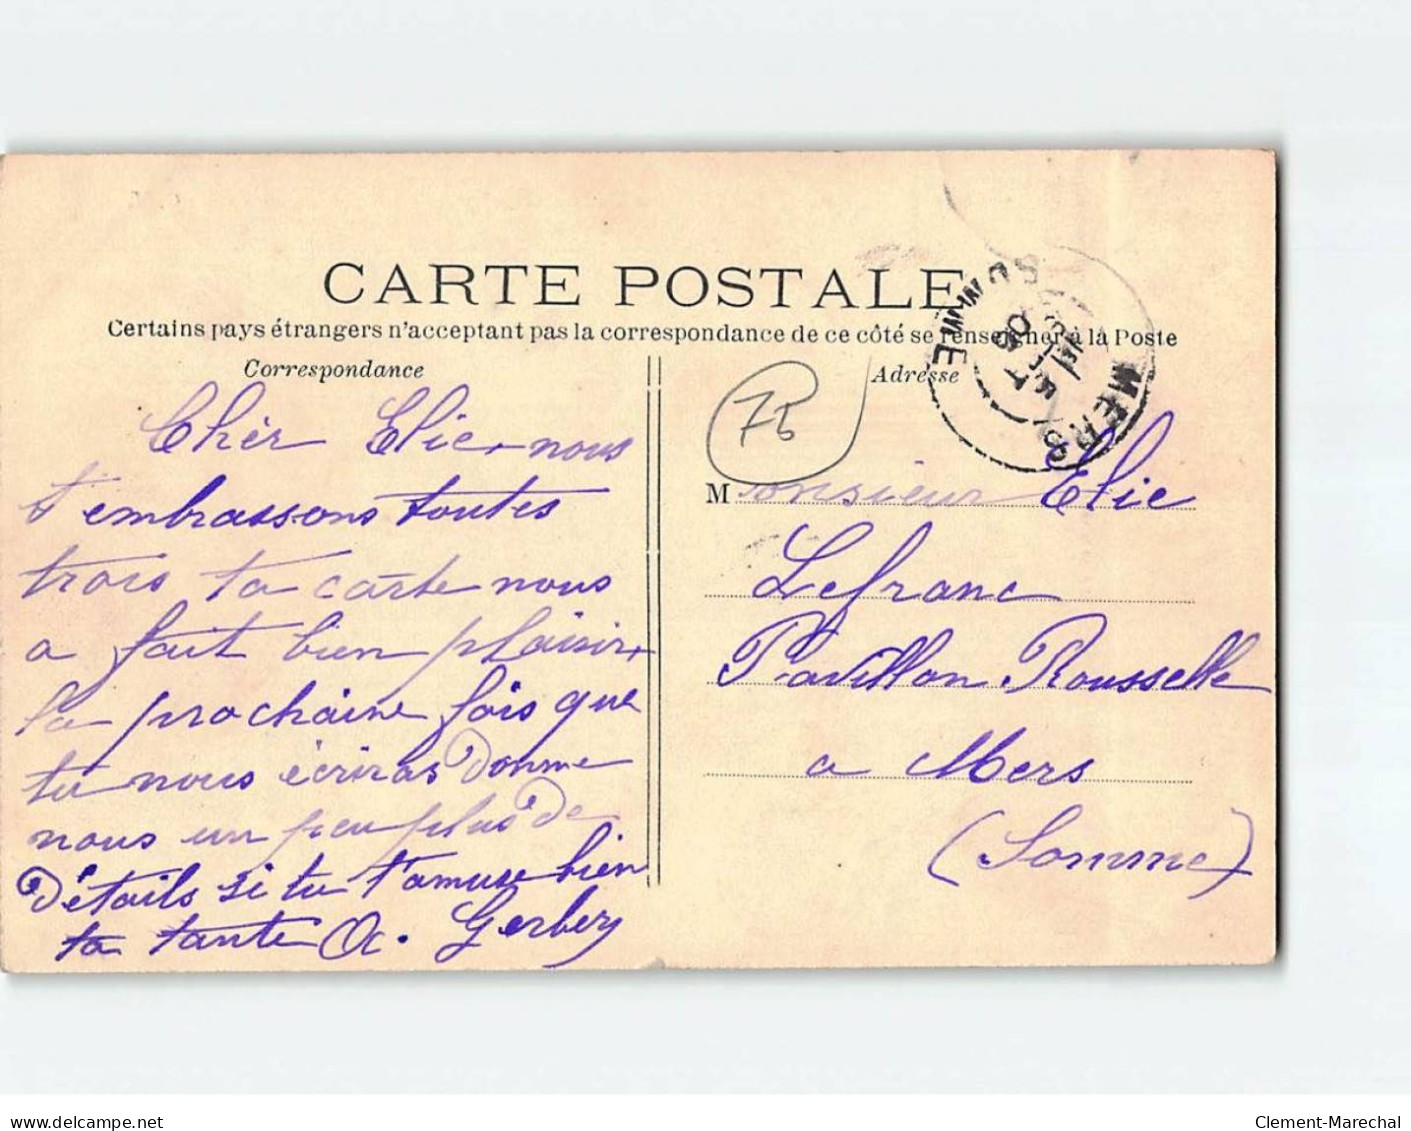 CARTE POSTALE
Certains pays étrangers n'acceptant pas la correspondance de ce côté se renseigner à la Poste
Correspondance
Chèr Elie, nous
t'embrassons toutes
trois ta carte nous
a fait bien plaisir,
la prochaine fois que
tu nous écriras Donne
nous un peu plus De
Détails si tu t'amuse bien
ta tante A. Gerbey
Adresse
75
SOMME
MERS
06
Monsieur Elie
Lefranc
Pavillon Rousselle
a Mers
(Somme)
www.delcampe.net
Clement-Marechal